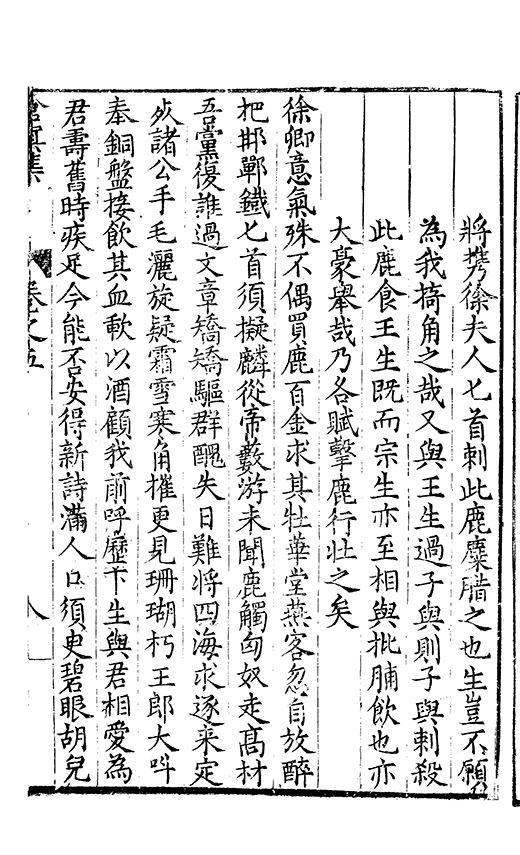 將携徐夫人匕首刺此鹿麋腊之也生豈不願
為我掎角之哉又與王生過子與則子與刺殺
此鹿食王生既而宗生亦至相與批脯飲也亦
大豪舉哉乃各賦擊鹿行壯之矣
徐卿意氣殊不偶買鹿百金求其牡華堂燕客忽自放醉
把邯鄲鐵匕首須擬麟從帝藪游未聞鹿觸匈奴走高材
吾黨復誰過文章矯矯驅群醜失日難將四海求逐來定
死諸公手毛灑旋疑霜雪寒角摧更見珊瑚朽王郎大呌
奉銅盤接飲其血歃以酒顧我前呼歷下生與君相愛為
君壽舊時疾足今能否安得新詩滿人口須史碧眼胡兒
滄溟集
卷之五
八